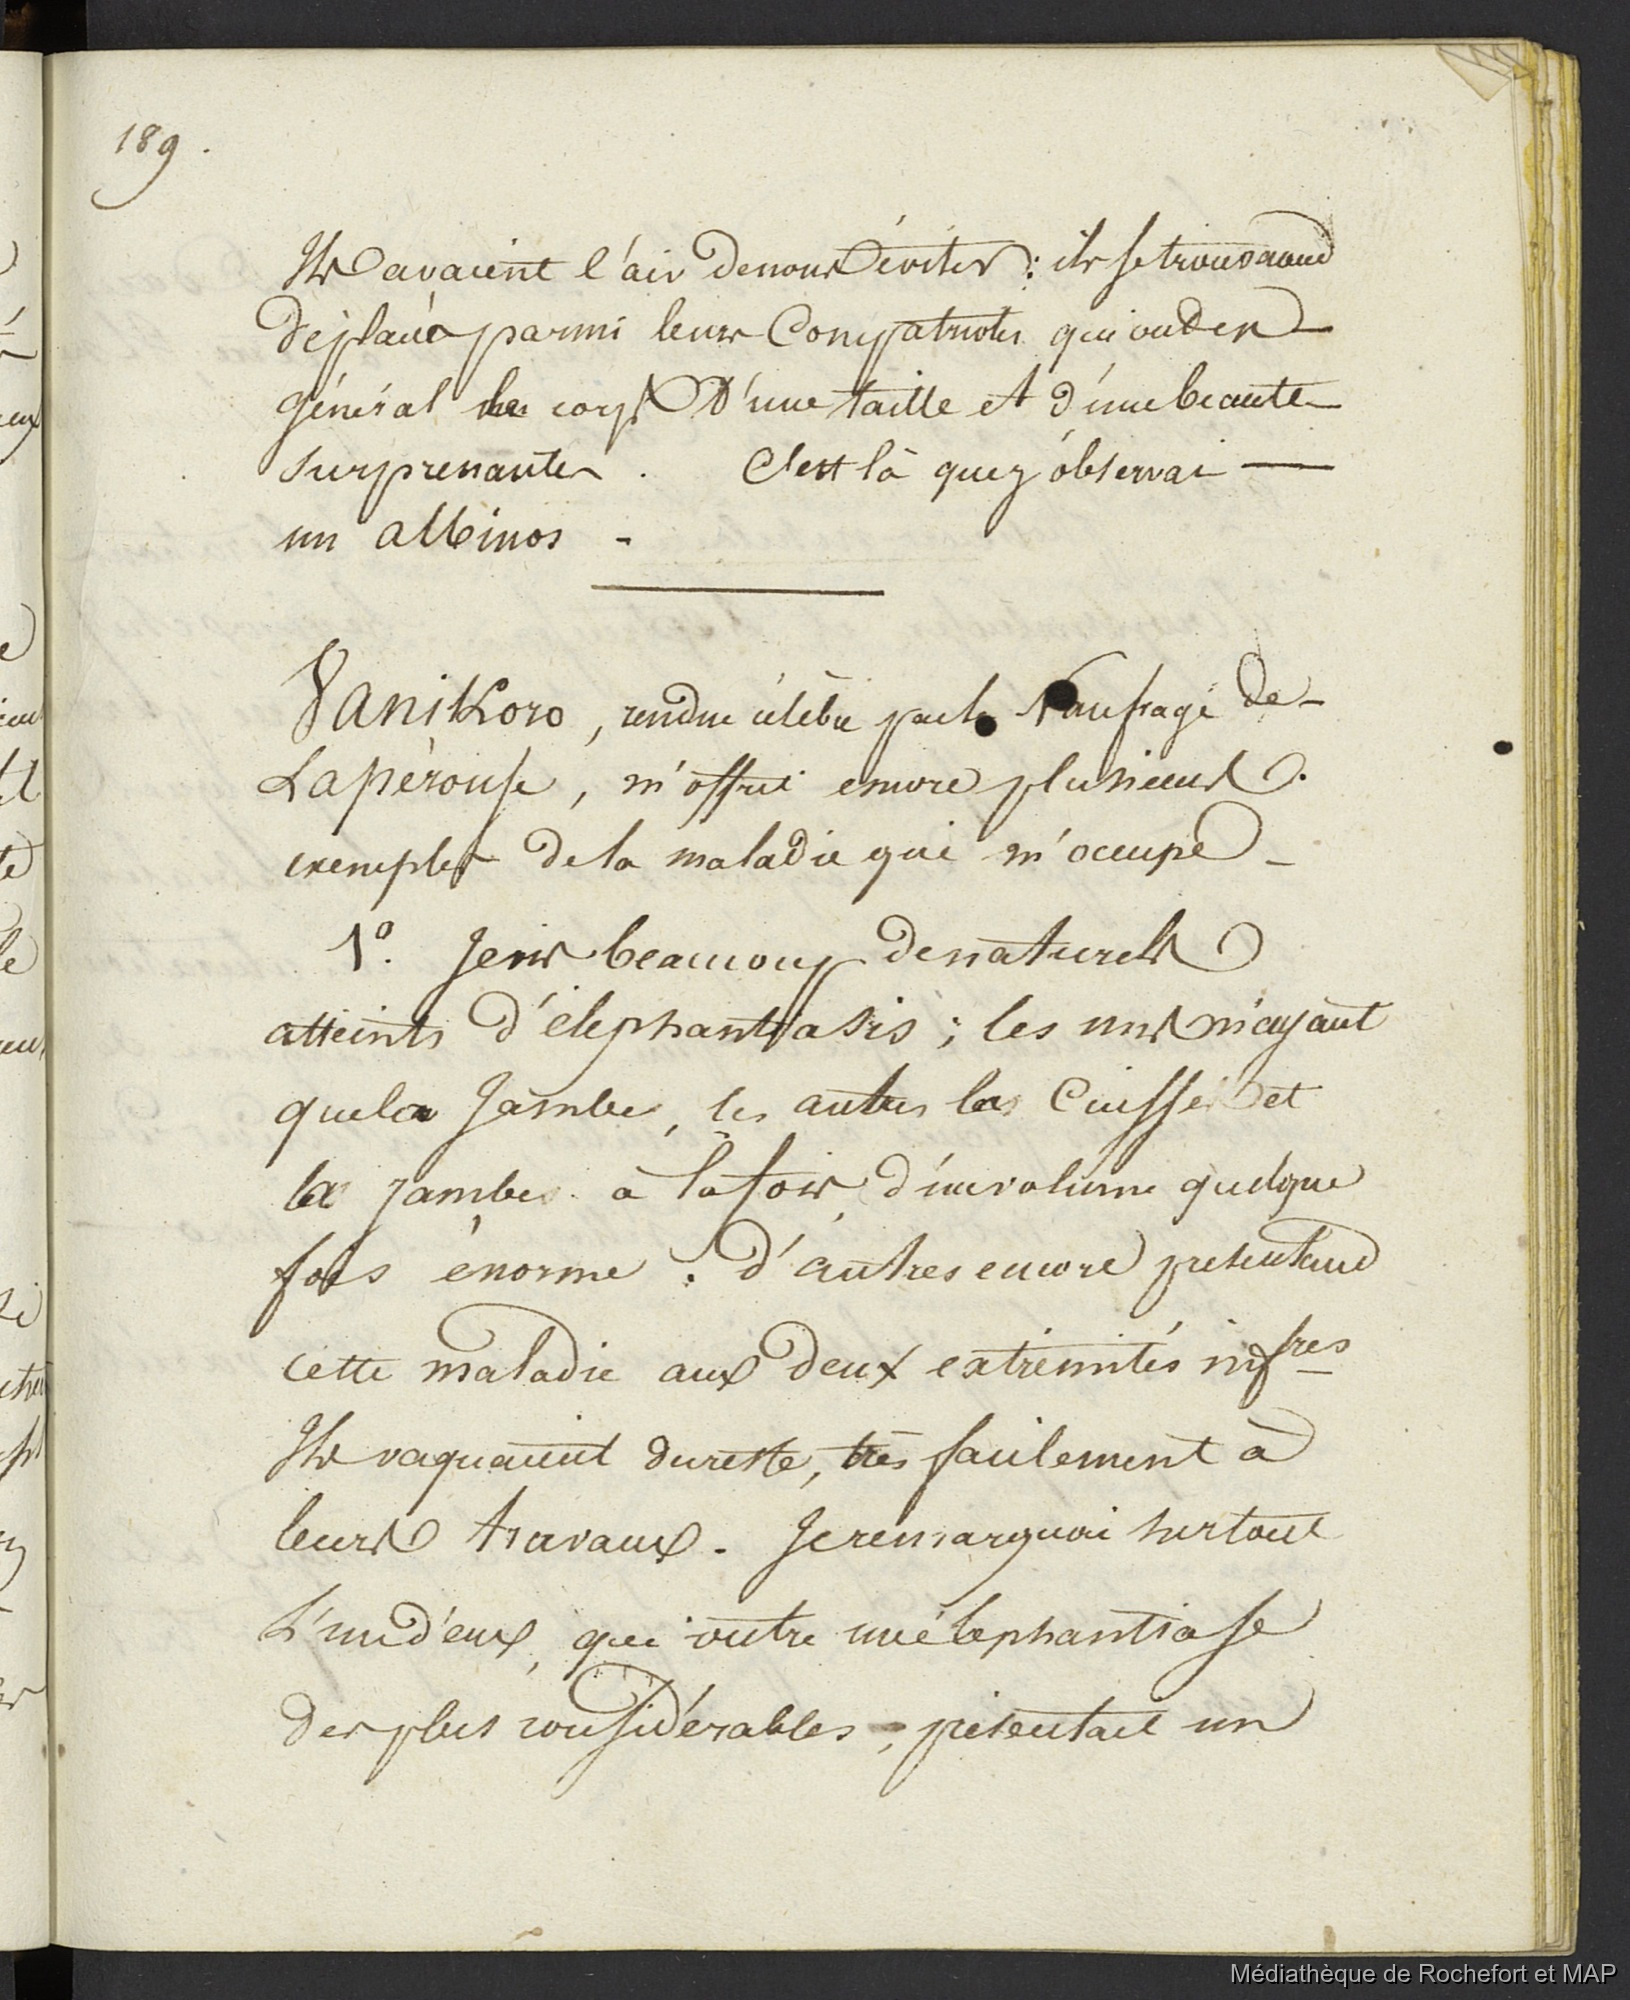 189.
Ils avaient l'air de nous éviter : ils se trouvaient
déplacés parmi leurs Compatriotes qui ont en
général le corps D'une taille et d'une beauté
surprenantes. C'est là que j'observai
un albinos.
Vanikoro, rendue célèbre par le Naufrage de
Lapérouse, m'offrit encore plusieurs
exemples de la maladie qui m'occupe
1º. Je vis beaucoup de naturels
atteints d'éléphantiasis ; les uns n'ayant
que la Jambe, les autres la Cuisse et
la jambe à la fois, d'un volume quelque
fois énorme : d'autres encore présentant
cette maladie aux deux extrémités infres
Ils vaquaient du reste, très facilement à
leurs travaux. Je remarquai surtout
L'un d'eux, qui outre un éléphantiase
des plus considérables, présentait un
Médiathèque de Rochefort et MAP